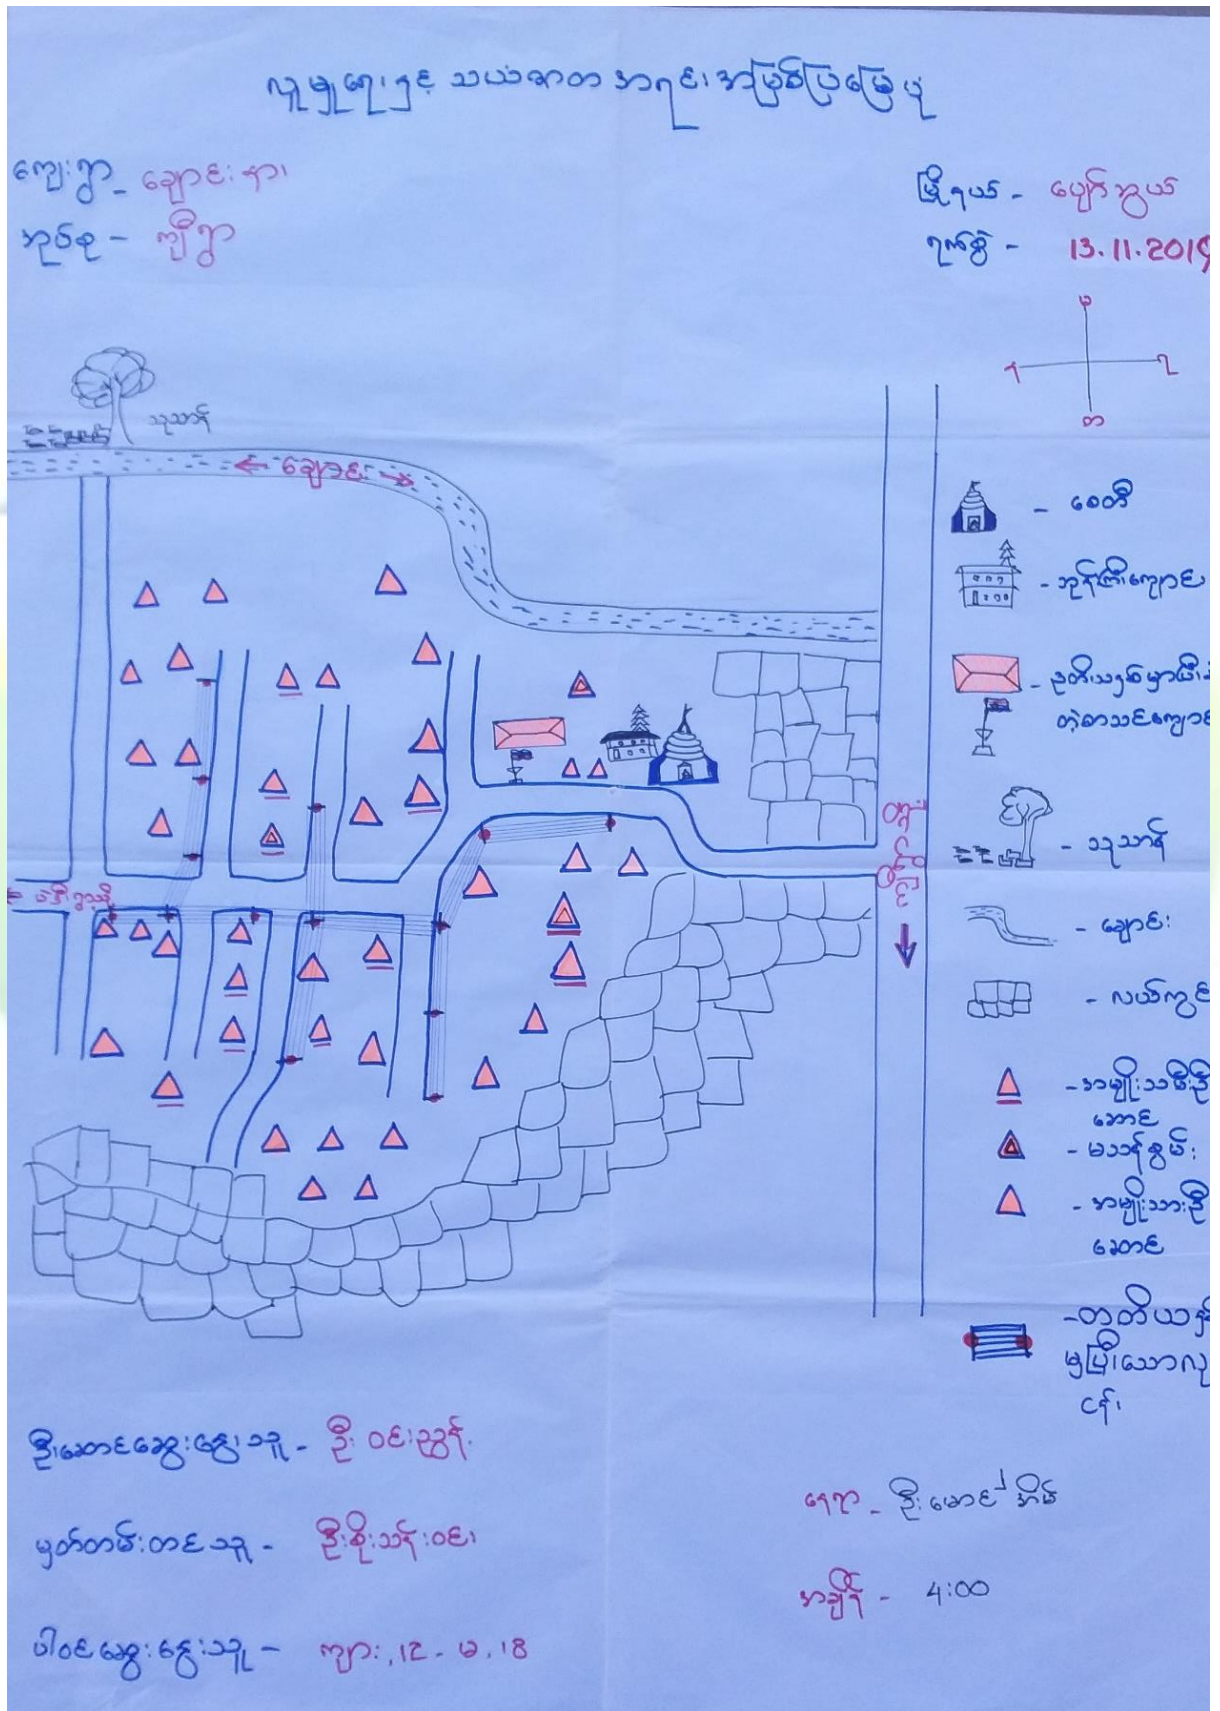 လူမှုရေးနှင့် သယံဇာတ အရင်းအမြစ်ပြမြေပုံ
ကျေးရွာ - ချောင်းနား
အုပ်စု - ကျီရွာ
မြို့နယ် - ပျော်ဘွယ်
ရက်စွဲ - 13.11.2019
မ
န
တ
သုသာန်
ချောင်း
- စေတီ
- ဘုန်းကြီးကျောင်း
- ဒုတိယနှစ်မှာပြီး
တဲ့စာသင်ကျောင်း
- သုသာန်
- ချောင်း
- လယ်ကွင်း
- အမျိုးသမီးဦး
ဆောင်
- မသန်စွမ်း
- အမျိုးသားဦး
ဆောင်
- တတိယနှစ်
မှပြီးသောလုပ်
ငန်း
ဦးဆောင်ဆွေးနွေးသူ - ဦးဝင်းညွန့်
မှတ်တမ်းတင်သူ - ဦးစိုးသန်းဝင်း
ပါဝင်ဆွေးနွေးသူ - ကျား, 12 - မ, 18
နေရာ - ဦးမောင်မောင်အိမ်
အချိန် - 4:00